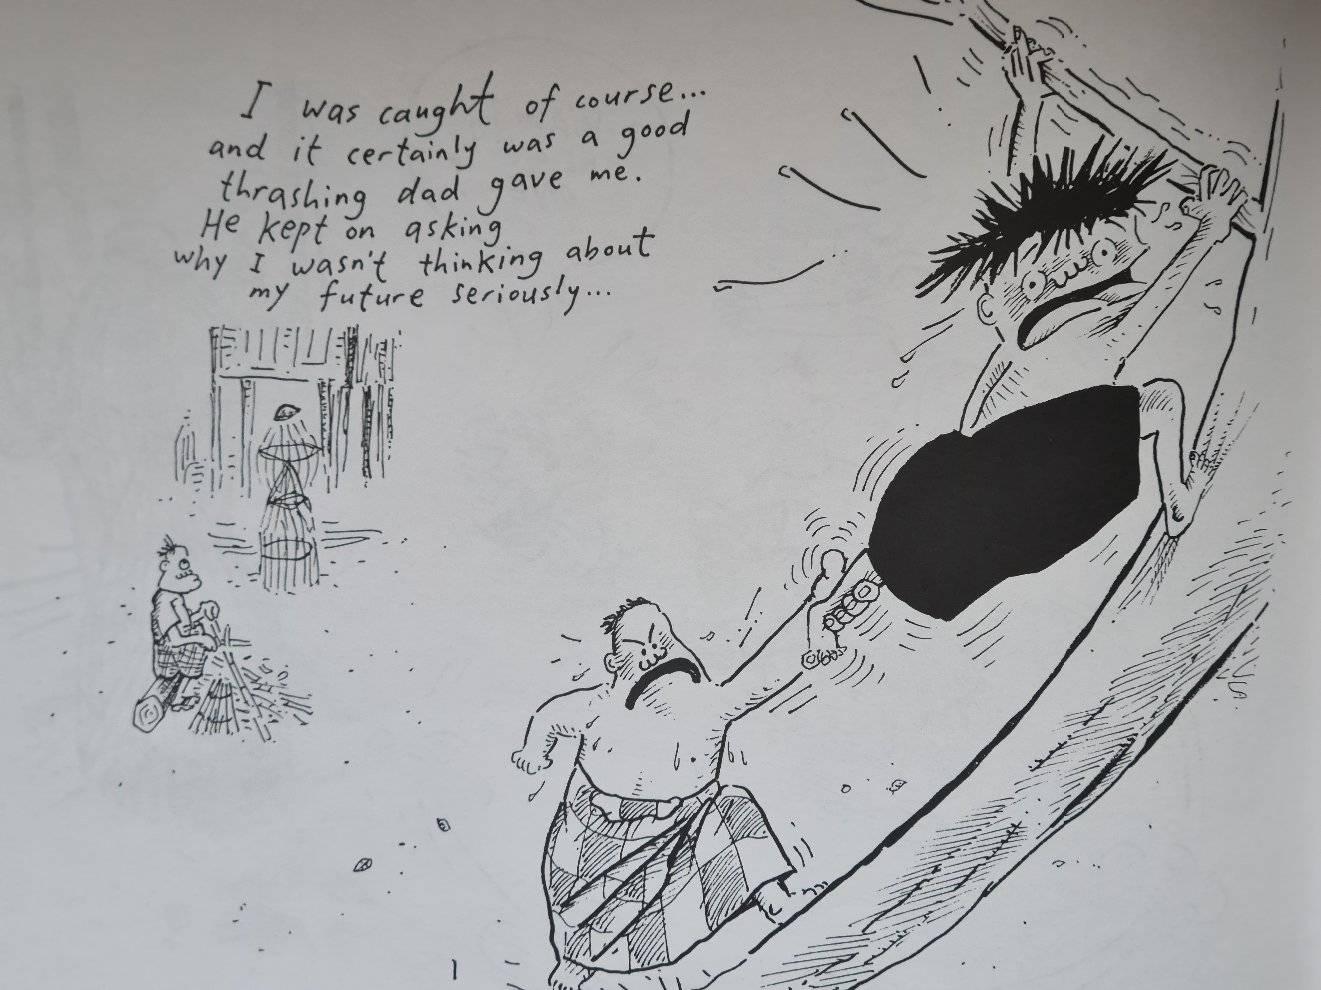 I was caught of course...
and it certainly was a good
thrashing dad gave me.
He kept on asking
why I wasn't thinking about
my future seriously...